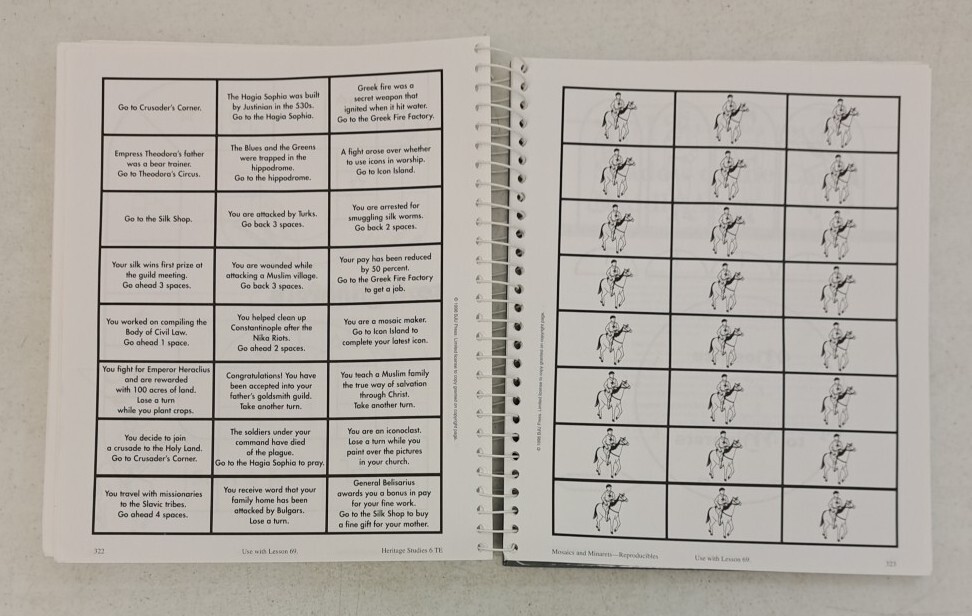 Go to Crusader's Corner.
The Hagia Sophia was built
by Justinian in the 530s.
Go to the Hagia Sophia.
Greek fire was a
secret weapon that
ignited when it hit water.
Go to the Greek Fire Factory.
Empress Theodora's father
was a bear trainer.
Go to Theodora's Circus.
The Blues and the Greens
were trapped in the
hippodrome.
Go to the hippodrome.
A fight arose over whether
to use icons in worship.
Go to Icon Island.
Go to the Silk Shop.
You are attacked by Turks.
Go back 3 spaces.
You are arrested for
smuggling silk worms.
Go back 2 spaces.
Your silk wins first prize at
the guild meeting.
Go ahead 3 spaces.
You are wounded while
attacking a Muslim village.
Go back 3 spaces.
Your pay has been reduced
by 50 percent.
Go to the Greek Fire Factory
to get a job.
You worked on compiling the
Body of Civil Law.
Go ahead 1 space.
You helped clean up
Constantinople after the
Nika Riots.
Go ahead 2 spaces.
You are a mosaic maker.
Go to Icon Island to
complete your latest icon.
You fight for Emperor Heraclius
and are rewarded
with 100 acres of land.
Lose a turn
while you plant crops.
Congratulations! You have
been accepted into your
father's goldsmith guild.
Take another turn.
You teach a Muslim family
the true way of salvation
through Christ.
Take another turn.
You decide to join
a crusade to the Holy Land.
Go to Crusader's Corner.
The soldiers under your
command have died
of the plague.
Go to the Hagia Sophia to pray.
You are an iconoclast.
Lose a turn while you
paint over the pictures
in your church.
You travel with missionaries
to the Slavic tribes.
Go ahead 4 spaces.
You receive word that your
family home has been
attacked by Bulgars.
Lose a turn.
General Belisarius
awards you a bonus in pay
for your fine work.
Go to the Silk Shop to buy
a fine gift for your mother.
© 1998 BJU Press. Limited license to copy granted on copyright page.
322
Use with Lesson 69.
Heritage Studies 6 TE
© 1998 BJU Press. Limited license to copy granted on copyright page.
Mosaics and Minarets—Reproducibles
Use with Lesson 69.
323